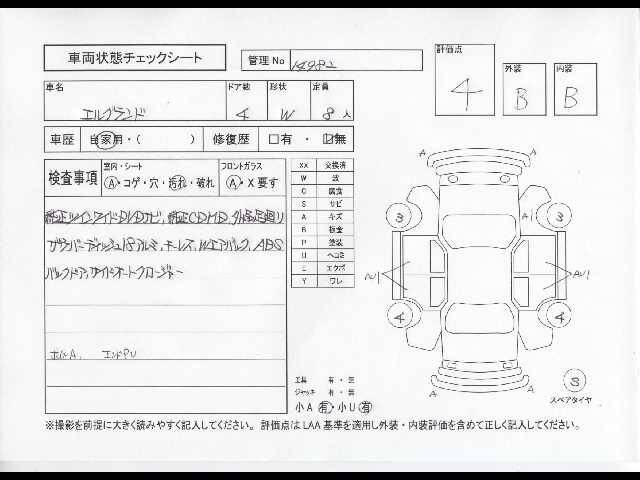 車両状態チェックシート
管理No 14982
評価点
4
外装
B
内装
B
車名
エルグランド
ドア数
4
形状
W
定員
8人
車歴 自家用・( )
修復歴 □有・□無
検査事項
室内・シート
A・コゲ・穴・汚れ・破れ
フロントガラス
A・X要す
XX 交換済
W 波
C 腐食
S サビ
A キズ
B 板金
P 塗装
U ヘコミ
E エクボ
Y ワレ
純正ツインワイドDVDナビ、純正CDMD、外品足廻り
グランバーディッシュ18アルミ、キーレス、Wエアバック、ABS
バックドア、サイドオートクロージャー
ボルトA、 エンドPU
A
A
3
3
AU1
AU1
4
4
A
A
3
スペアタイヤ
工具 有・無
ジャッキ 有・無
小A有・小U有
※撮影を前提に大きく読みやすく記入してください。 評価点はLAA基準を適用し外装・内装評価を含めて正しく記入してください。